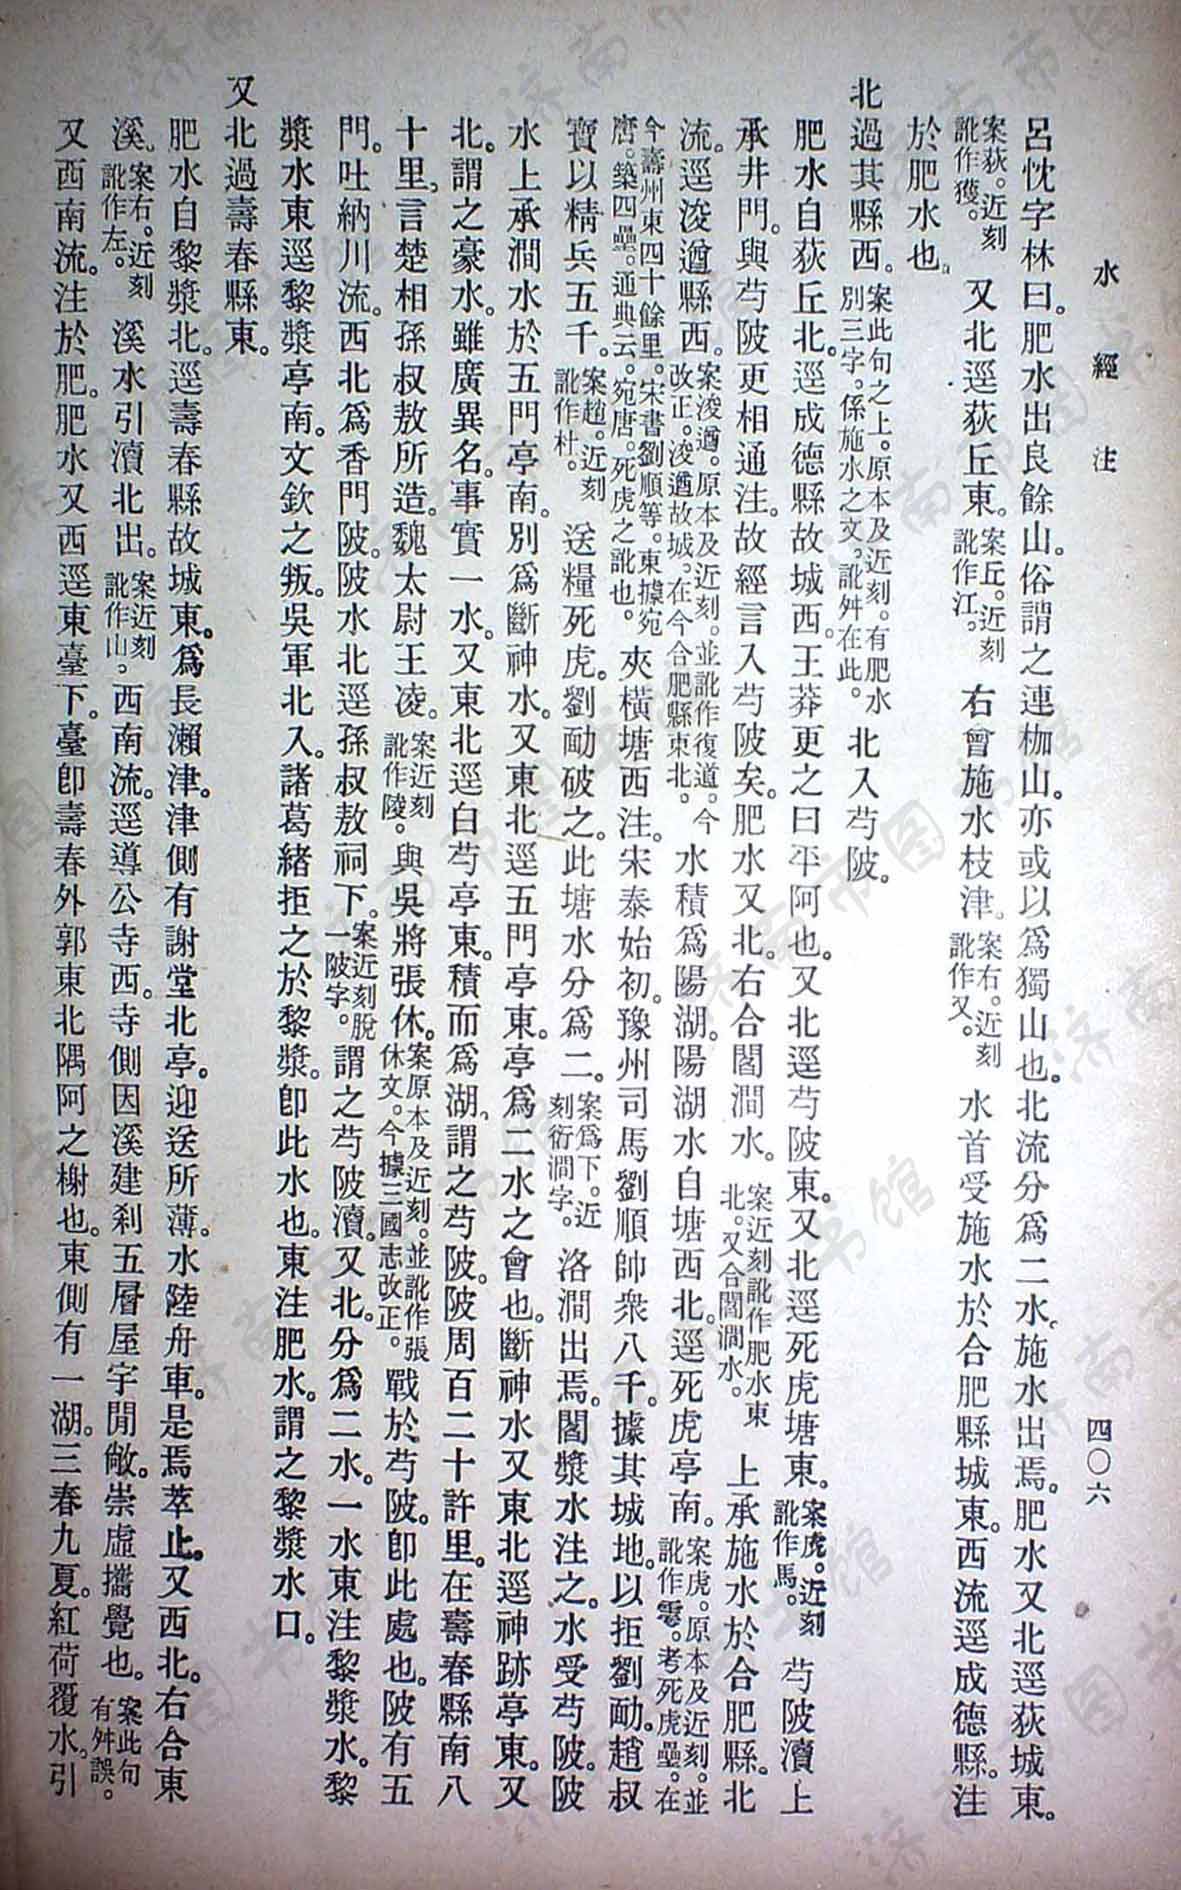 水經注
四〇六
呂忱字林曰。肥水出良餘山。俗謂之連枷山。亦或以爲獨山也。北流分爲二水。施水出焉。肥水又北逕荻城東。
案荻。近刻訛作獲。又北逕荻丘東。案丘。近刻訛作江。右會施水枝津。案右。近刻訛作又。水首受施水於合肥縣城東。西流逕成德縣。注
於肥水也。
北過其縣西。案此句之上。原本及近刻。有肥水別三字。係施水之文。訛舛在此。北入芍陂。
肥水自荻丘北。逕成德縣故城西。王莽更之曰平阿也。又北逕芍陂東。又北逕死虎塘東。案虎。近刻訛作馬。芍陂瀆上
承井門。與芍陂更相通注。故經言入芍陂矣。肥水又北。右合閻澗水。案近刻訛作肥水東北。又合閻澗水。上承施水於合肥縣。北
流。逕浚遒縣西。案浚遒。原本及近刻。並訛作復道。今改正。浚遒故城。在今合肥縣東北。水積爲陽湖。陽湖水自塘西北。逕死虎亭南。案虎。原本及近刻。並訛作雩。考死虎壘。在
今壽州東四十餘里。宋書劉順等。東據宛唐。築四壘。通典云。宛唐。死虎之訛也。夾橫塘西注。宋泰始初。豫州司馬劉順帥衆八千。據其城地。以拒劉勔。趙叔
寶以精兵五千。案趙。近刻訛作杜。送糧死虎。劉勔破之。此塘水分爲二。案爲下。近刻衍澗字。洛澗出焉。閻漿水注之。水受芍陂。陂
水上承澗水於五門亭南。別爲斷神水。又東北逕五門亭東。亭爲二水之會也。斷神水又東北逕神跡亭東。又
北。謂之豪水。雖廣異名。事實一水。又東北逕白芍亭東。積而爲湖。謂之芍陂。陂周百二十許里。在壽春縣南八
十里。言楚相孫叔敖所造。魏太尉王凌。案近刻訛作陵。與吳將張休。案原本及近刻。並訛作張休文。今據三國志改正。戰於芍陂。即此處也。陂有五
門。吐納川流。西北爲香門陂。陂水北逕孫叔敖祠下。案近刻脫一陂字。謂之芍陂瀆。又北。分爲二水。一水東注黎漿水。黎
漿水東逕黎漿亭南。文欽之叛。吳軍北入。諸葛緒拒之於黎漿。即此水也。東注肥水。謂之黎漿水口。
又北過壽春縣東。
肥水自黎漿北。逕壽春縣故城東。爲長瀨津。津側有謝堂北亭。迎送所薄。水陸舟車。是焉萃止。又西北。右合東
溪。案右。近刻訛作左。溪水引瀆北出。案近刻訛作山。西南流。逕導公寺西。寺側因溪建刹五層。屋宇閒敞。崇虛攜覺也。案此句有舛誤。
又西南流。注於肥。肥水又西逕東臺下。臺即壽春外郭東北隅阿之榭也。東側有一湖。三春九夏。紅荷覆水。引